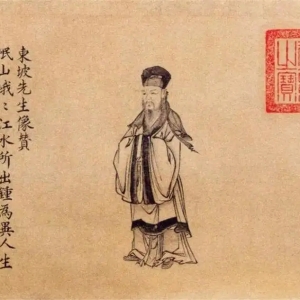 東坡先生像贊
岷山峩〻江水所出鍾為異人生